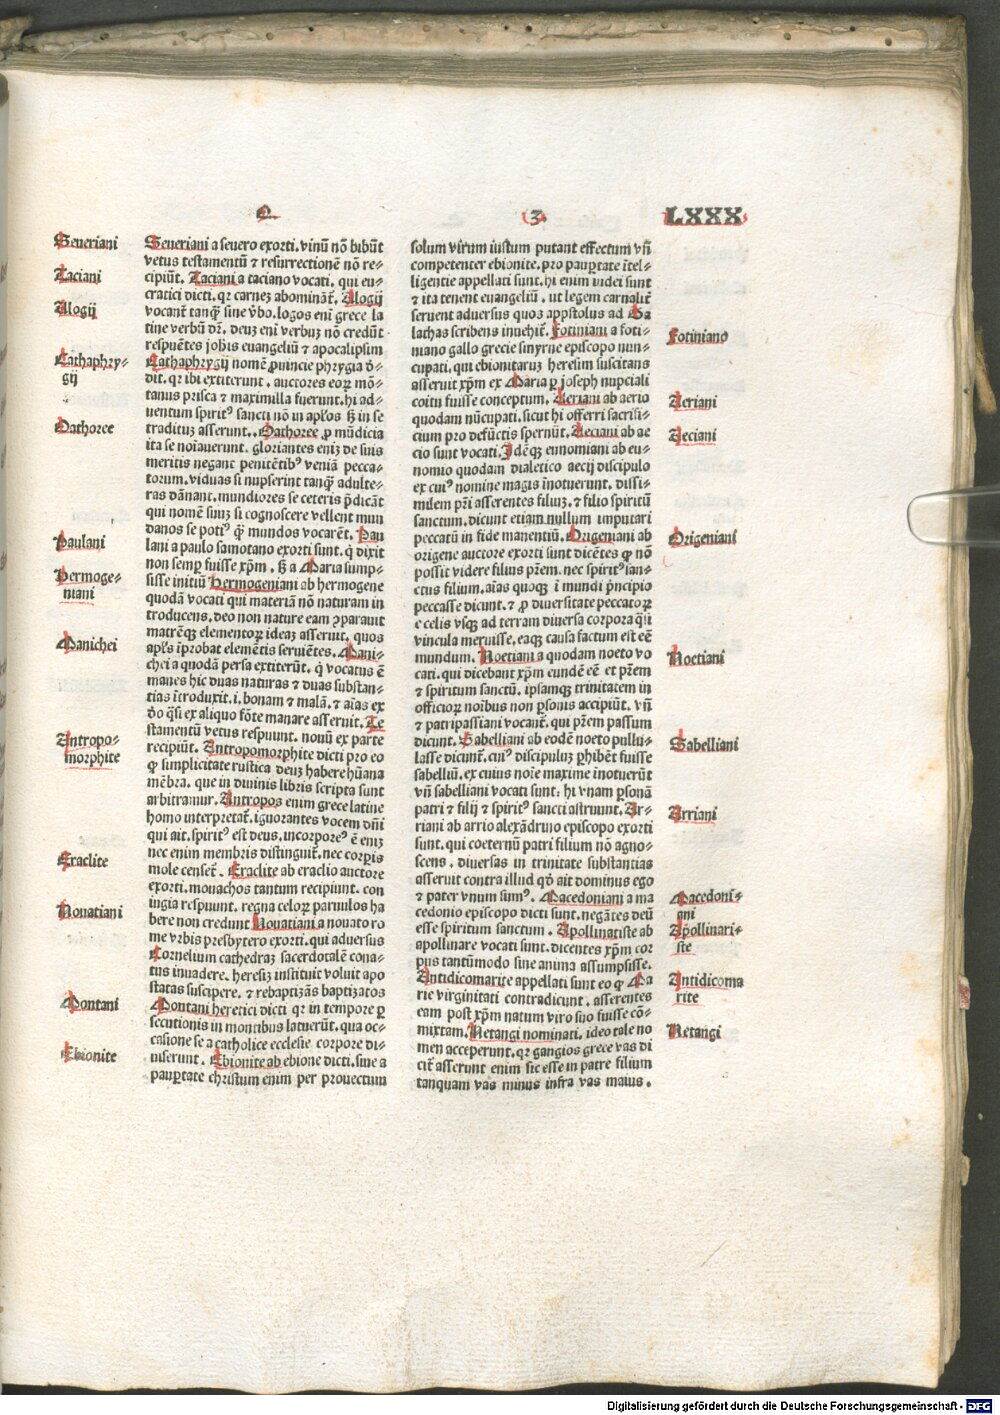 Q
3
LXXX
Seueriani
Taciani
Alogij
Cathaphry⸗
gij
Cathoree
Paulani
Hermoge⸗
niani
Manichei
Antropo⸗
morphite
Eraclite
Nouatiani
Montani
Ebionite
Seueriani a seuero exorti. vinū nō bibūt
vetus testamentū ⁊ resurrectionē nō re⸗
cipiūt. Taciani a taciano vocati, qui en⸗
cratici dicti. qꝛ carneꝫ abomināt᷑. Alogij
vocant᷑ tanqꝫ sine v̓bo. logos eni᷑ grece la
tine verbū dr̄. deuꝫ eni᷑ verbuꝫ nō credūt ⸗
respuētes joh̄is euangeliū ⁊ apocalipsim
Cathaphrygij nomē ꝓuincie phrygia d̓⸗
dit. qꝛ ibi extiterunt. auctores eoꝝ mō⸗
tanus prisca ⁊ maximilla fuerunt. hi ad⸗
uentum spiritꝰ sancti nō in apl̓os sꝫ in se
traditus asserunt. Cathoree ꝓ mūdicia
ita se noi᷑auerunt. gloriantes eniꝫ de suis
meritis negant penitētibꝰ veniā pecca⸗
torum. viduas si nupserint tanqꝫ adulte⸗
ras dānant. mundiores se ceteris p̄dicāt
qui nomē suuꝫ si cognoscere vellent mun
danos se potiꝰ qꝫ mundos vocarēt. Pau
lani a paulo samotano exorti sunt. q̇ dixit
non semꝑ fuisse xp̄m. sꝫ a Maria sump⸗
sisse initiū Hermogeniani ab hermogene
quodā vocati qui materiā nō naturam in
troducens. deo non nature eam ꝯparauit
matrēqꝫ elementoꝝ ideaꝫ asseruit. quos
apl̓s i᷑probat elemētis seruiētes. Mani⸗
chei a quodā persa extiterūt. q̇ vocatus ē
manes hic duas naturas ⁊ duas substan⸗
tias i᷑troduxit. i. bonam ⁊ malā. ⁊ ai᷑as ex
d̓o q̄si ex aliquo fōte manare asseruit. Te
stamentū vetus respuunt. nouū ex parte
recipiūt. Antropomorphite dicti pro eo
ꝙ simplicitate rustica deuꝫ habere hūana
mēbra. que in diuinis libris scripta sunt
arbitramur. Antropos enim grece latine
homo interpretat᷑. ignorantes vocem dn̄i
qui ait. spiritꝰ est deus. incorporeꝰ ē eniꝫ
nec enim membris distinguit᷑. nec corpis
mole censet᷑. Eraclite ab eraclio auctore
exorti. monachos tantum recipiunt. con
iugia respuunt. regna celoꝝ paruulos ha
bere non credunt Nouatiani a nouato ro
me vrbis presbytero exorti. qui aduersus
Cornelium cathedraꝫ sacerdotalē cona⸗
tus inuadere. heresiꝫ instituit voluit apo
statas suscipere. ⁊ rebaptizās baptizatos
Montani heretici dicti qꝛ in tempore ꝑ
secutionis in montibus latuerūt. qua oc⸗
casione se a catholice ecclesie corpore di⸗
uiserunt. Ebionite ab ebione dicti. siue a
pauꝑtate christum enim per prouectum
solum virum iustum putant effectum vn̄
competenter ebionite. pro pauꝑtate i᷑tel⸗
ligentie appellati sunt. hi enim iudei sunt
⁊ ita tenent euangeliū. ut legem carnalit᷑
seruent aduersus quos appstolus ad Ga
lathas scribens inuehit᷑. Fotiniani a foti⸗
niano gallo grecie smyrne episcopo nun⸗
cupati. qui ebionitaruꝫ heresim suscitans
asseruit xp̄m ex Maria ꝑ joseph nupciali
coitu fuisse conceptum. Aeriani ab aerio
quodam nūcupati. sicut hi offerri sacrifi⸗
cium pro defūctis spernūt. Aeciani ab ae
cio sunt vocati. Idēqꝫ eunomiani ab eu⸗
nomio quodam dialetico aecij discipulo
ex cuiꝰ nomine magis i᷑notuerunt. dissi⸗
milem pr̄i asserentes filiuꝫ. ⁊ filio spiritū
sanctum. dicunt etiam nullum imputari
peccatū in fide manentiū. Origeniani ab
origene auctore exorti sunt dicētes ꝙ nō
possit videre filius pr̄em. nec spiritꝰ san⸗
ctus filium. ai᷑as quoqꝫ i᷑ mundi p̄ncipio
peccasse dicunt. ⁊ ꝓ diuersitate peccatoꝝ
e celis vsqꝫ ad terram diuersa corpora q̄si
vincula meruisse. eaqꝫ causa factum est eē
mundum. Noetiani a quodam noeto vo
cati. qui dicebant xp̄m eundē eē et pr̄em
⁊ spiritum sanctū. ipsamqꝫ trinitatem in
officioꝝ noībus non ꝑsonis accipiūt. vn̄
⁊ patripassiani vocant᷑. qui pr̄em passum
dicunt. Sabelliani ab eodē noeto pullu⸗
lasse dicunt᷑. cuiꝰ discipuluꝫ ꝑhibēt fuisse
sabelliū. ex cuius noīe maxime i᷑notuerūt
vn̄ sabelliani vocati sunt: hi vnam ꝑsonā
patri ⁊ filij ⁊ spiritꝰ sancti astruunt. Ar⸗
riani ab arrio alexādrino episcopo exorti
sunt. qui coeternū patri filium nō agno⸗
scens. diuersas in trinitate substantias
asseruit contra illud qd̓ ait dominus ego
⁊ pater vnum sumꝰ. Macedoniani a ma
cedonio episcopo dicti sunt. negātes deū
esse spiritum sanctum. Apollinatiste ab
apollinare vocati sunt. dicentes xp̄m cor
pus tantūmodo sine anima assumpsisse.
Antidicomarite appellati sunt eo ꝙ Ma
rie virginitati contradicunt. asserentes
eam post xp̄m natum viro suo fuisse cō⸗
mixtam. Metangi nominati. ideo tale no
men acceperunt. qꝛ gangios grece vas di
cit᷑ asserunt enim sic esse in patre filium
tanquam vas minus infra vas maius.
Fotiniano
Aeriani
Aeciani
Origeniani
Noetiani
Sabelliani
Arriani
Macedoni⸗
ani
Apollinari⸗
ste
Antidicoma
rite
Metangi
Digitalisierung gefördert durch die Deutsche Forschungsgemeinschaft - DFG